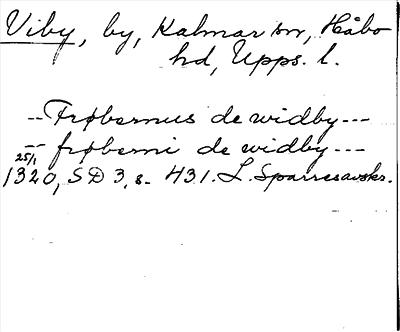 Viby, by, Kalmar sn, Håbo
hd, Upps. l.
-- Frøbernus de widby ---
-- frøberni de widby ---
25/1
1320, SD 3, s. 431. L. Sparresavskr.